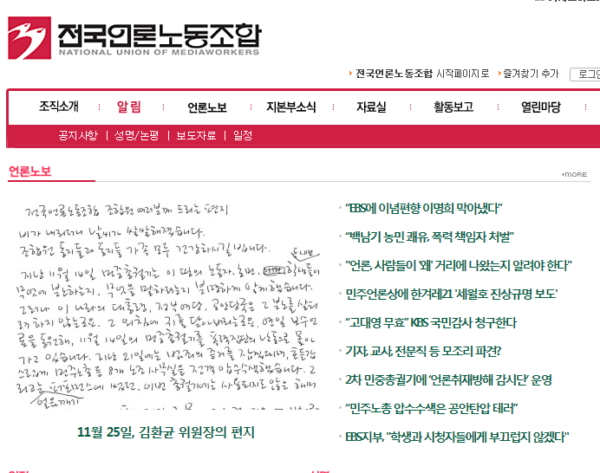 전국언론노동조합
NATIONAL UNION OF MEDIAWORKERS
전국언론노동조합 시작페이지로 즐겨찾기 추가 로그인
조직소개 알림 언론노보 지본부소식 자료실 활동보고 열린마당
공지사항 | 성명/논평 | 보도자료 | 일정
언론노보
+MORE
전국언론노동조합 조합원 여러분께 드리는 편지
비가 내리더니 날씨가 쌀쌀해졌습니다.
조합원 동지들과 동지들 가족 모두 건강하시길 빕니다.
지난 11월 14일 민중총궐기는 이 땅의 노동자, 농민, 학생들이
무엇에 분노하는지, 무엇을 말하려는지 분명하게 알게 했습니다.
그러나 이 나라의 대통령, 정부여당, 공안당국은 그 분노를 살펴
11월 25일, 김환균 위원장의 편지
“EBS에 이념편향 이명희 막아냈다”
“백남기 농민 쾌유, 폭력 책임자 처벌”
“언론, 사람들이 ‘왜’ 거리에 나왔는지 알려야 한다”
민주언론상에 한겨레21 ‘세월호 진상규명 보도’
“고대영 무효” KBS 국민감사 청구한다
기자, 교사, 전문직 등 모조리 파견?
2차 민중총궐기에 ‘언론취재방해 감시단’ 운영
“민주노총 압수수색은 공안탄압 테러”
EBS지부, “학생과 시청자들에게 부끄럽지 않겠다”